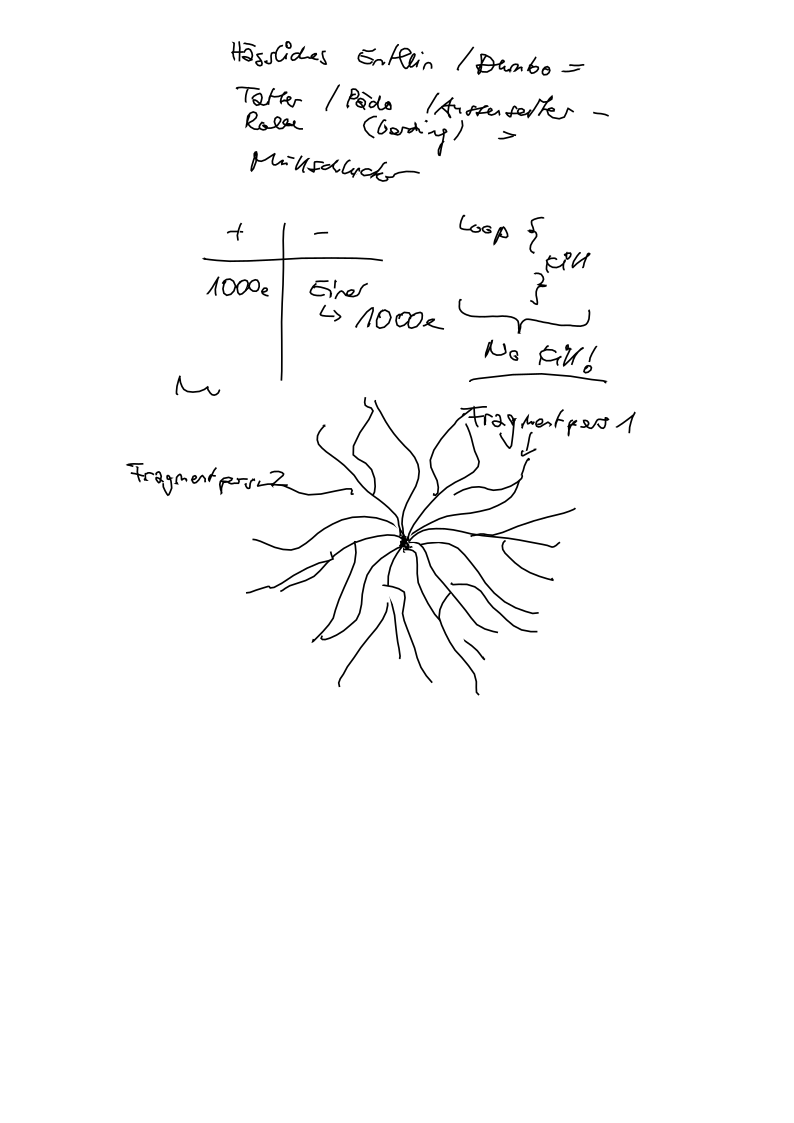 Hässliches Entlein / Dumbo =
Täter / Pädo / Aussenseiter -
Rolle ( ) >
Müllschlucker
+ -
1000e Einer
↳ 1000e
Loop {
Kill
}
No Kill!
Fragmentpers 1
Fragmentpers 2